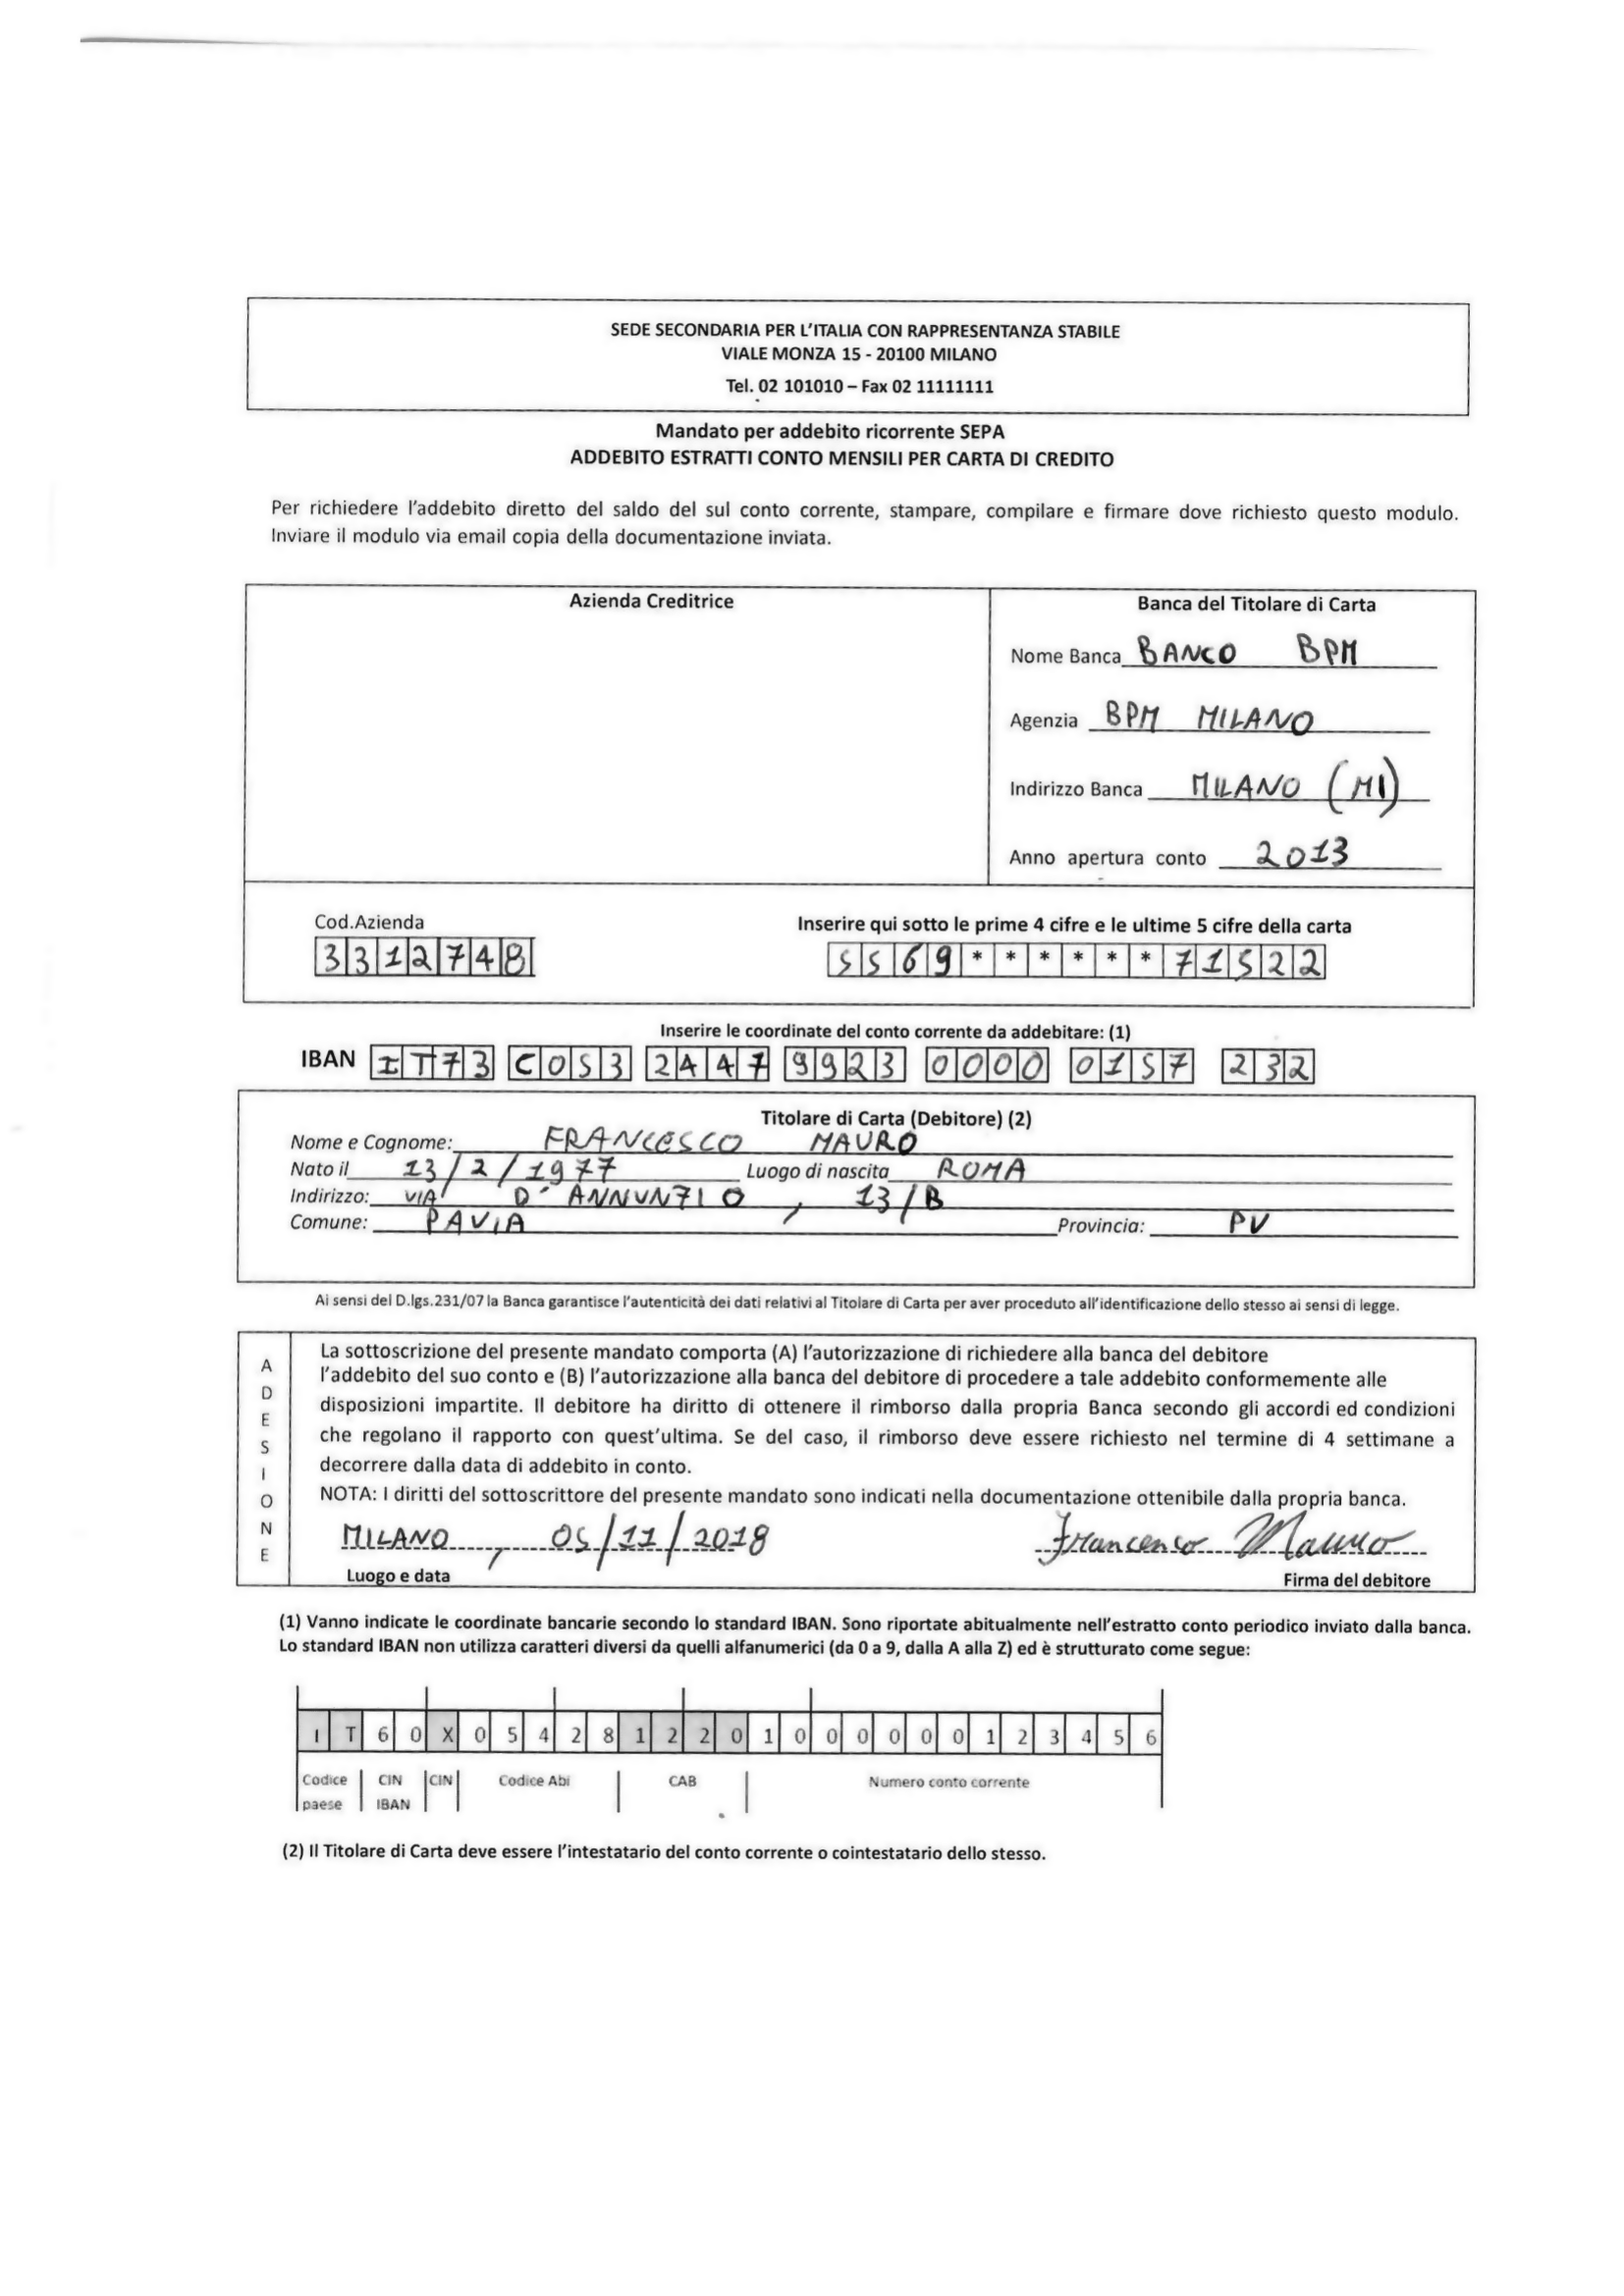 SEDE SECONDARIA PER L'ITALIA CON RAPPRESENTANZA STABILE
VIALE MONZA 15 - 20100 MILANO
Tel. 02 101010 – Fax 02 11111111
Mandato per addebito ricorrente SEPA
ADDEBITO ESTRATTI CONTO MENSILI PER CARTA DI CREDITO
Per richiedere l'addebito diretto del saldo del sul conto corrente, stampare, compilare e firmare dove richiesto questo modulo.
Inviare il modulo via email copia della documentazione inviata.
Azienda Creditrice
Banca del Titolare di Carta
Nome Banca BANCO BPM
Agenzia BPM MILANO
Indirizzo Banca MILANO (MI)
Anno apertura conto 2013
Cod.Azienda
3312748
Inserire qui sotto le prime 4 cifre e le ultime 5 cifre della carta
5569******71522
Inserire le coordinate del conto corrente da addebitare: (1)
IBAN IT73 C053 2447 9923 0000 0157 232
Titolare di Carta (Debitore) (2)
Nome e Cognome: FRANCESCO MAURO
Nato il 13/2/1977 Luogo di nascita ROMA
Indirizzo: VIA D'ANNUNZIO, 13/B
Comune: PAVIA Provincia: PV
Ai sensi del D.lgs.231/07 la Banca garantisce l'autenticità dei dati relativi al Titolare di Carta per aver proceduto all'identificazione dello stesso ai sensi di legge.
ADESIONE
La sottoscrizione del presente mandato comporta (A) l'autorizzazione di richiedere alla banca del debitore
l'addebito del suo conto e (B) l'autorizzazione alla banca del debitore di procedere a tale addebito conformemente alle
disposizioni impartite. Il debitore ha diritto di ottenere il rimborso dalla propria Banca secondo gli accordi ed condizioni
che regolano il rapporto con quest'ultima. Se del caso, il rimborso deve essere richiesto nel termine di 4 settimane a
decorrere dalla data di addebito in conto.
NOTA: I diritti del sottoscrittore del presente mandato sono indicati nella documentazione ottenibile dalla propria banca.
MILANO, 05/11/2018 Francesco Mauro
Luogo e data Firma del debitore
(1) Vanno indicate le coordinate bancarie secondo lo standard IBAN. Sono riportate abitualmente nell'estratto conto periodico inviato dalla banca.
Lo standard IBAN non utilizza caratteri diversi da quelli alfanumerici (da 0 a 9, dalla A alla Z) ed è strutturato come segue:
I T 6 0 X 0 5 4 2 8 1 2 2 0 1 0 0 0 0 0 0 1 2 3 4 5 6
Codice paese CIN IBAN CIN Codice Abi CAB Numero conto corrente
(2) Il Titolare di Carta deve essere l'intestatario del conto corrente o cointestatario dello stesso.